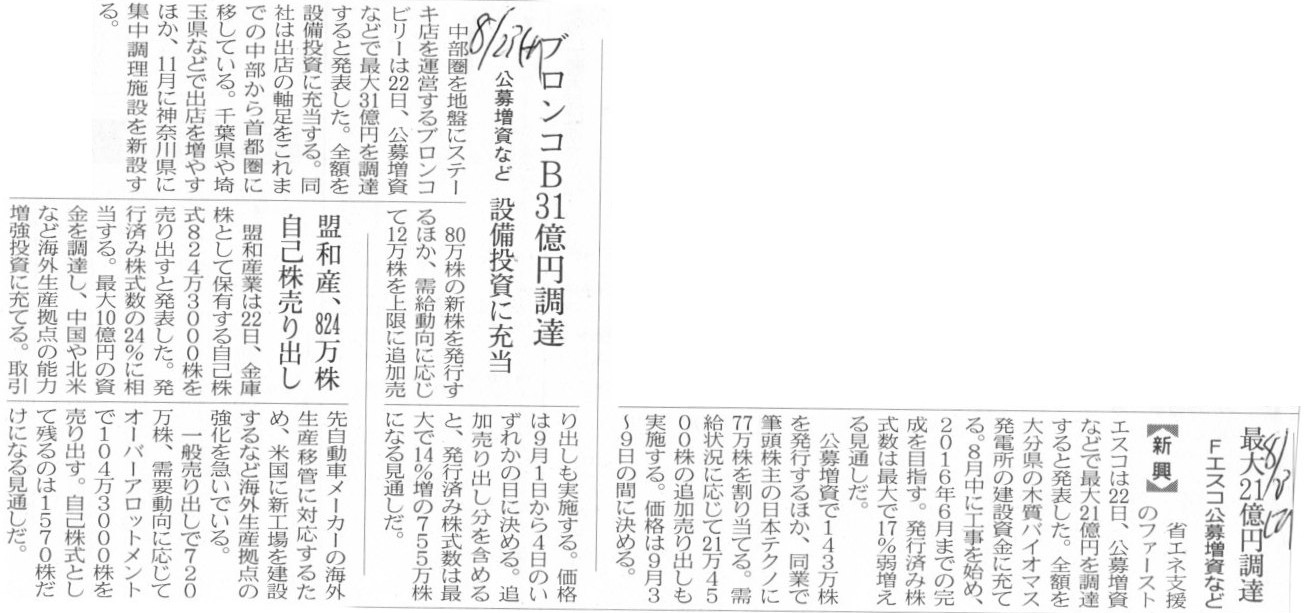 最大21億円調達
Fエスコ公募増資など
【新興】
省エネ支援
のファースト
エスコは22日、公募増資
などで最大21億円を調達
すると発表した。全額を
大分県の木質バイオマス
発電所の建設資金に充て
る。8月中に工事を始め、
2016年6月までの完
成を目指す。発行済み株
式数は最大で17%弱増え
る見通しだ。
公募増資で143万株
を発行するほか、同業で
筆頭株主の日本テクノに
77万株を割り当てる。需
給状況に応じて21万45
00株の追加売り出しも
実施する。価格は9月3
〜9日の間に決める。
ブロンコB31億円調達
公募増資など 設備投資に充当
8/23
中部圏を地盤にステー
キ店を運営するブロンコ
ビリーは22日、公募増資
などで最大31億円を調達
すると発表した。全額を
設備投資に充当する。同
社は出店の軸足をこれま
での中部から首都圏に
移している。千葉県や埼
玉県などで出店を増やす
ほか、11月に神奈川県に
集中調理施設を新設す
る。
80万株の新株を発行す
るほか、需給動向に応じ
て12万株を上限に追加売
り出しも実施する。価格
は9月1日から4日のい
ずれかの日に決める。追
加売り出し分を含める
と、発行済み株式数は最
大で14%増の755万株
になる見通しだ。
盟和産、824万株
自己株売り出し
盟和産業は22日、金庫
株として保有する自己株
式824万3000株を
売り出すと発表した。発
行済み株式数の24%に相
当する。最大10億円の資
金を調達し、中国や北米
など海外生産拠点の能力
増強投資に充てる。取引
先自動車メーカーの海外
生産移管に対応するた
め、米国に新工場を建設
するなど海外生産拠点の
強化を急いでいる。
一般売り出しで720
万株、需要動向に応じて
オーバーアロットメント
で104万3000株を
売り出す。自己株式とし
て残るのは1570株だ
けになる見通しだ。